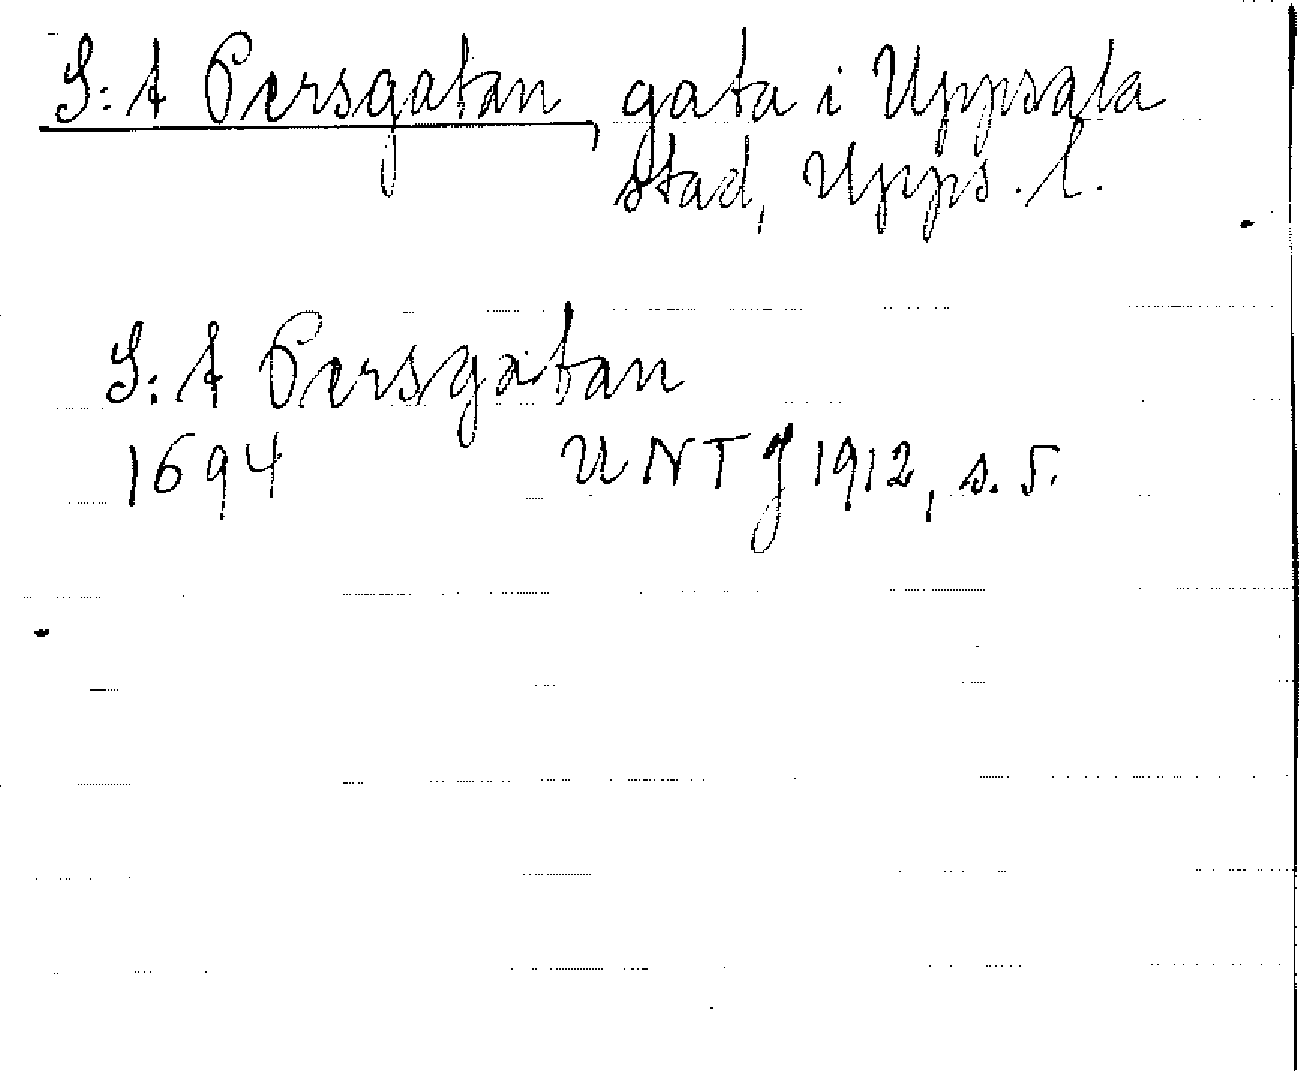 S:t Persgatan, gata i Uppsala
stad, Upps. l.
S:t Persgatan
1694 UNT J 1912, s. 5.